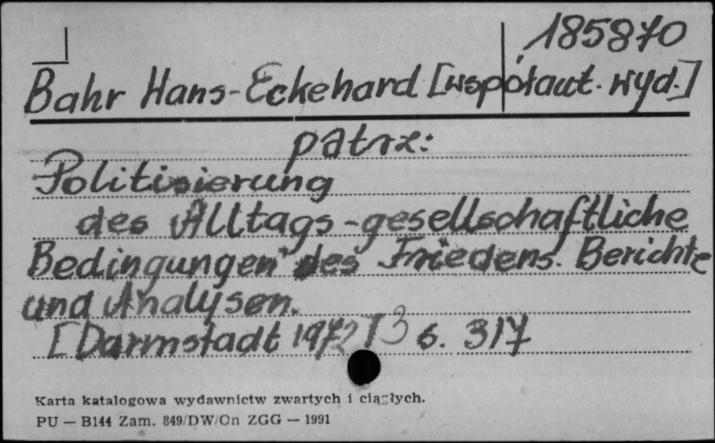 185870
Bahr Hans-Eckehard [współaut. wyd.]
patrz:
Politisierung
des Alltags-gesellschaftliche
Bedingungen des Friedens. Berichte
und Analysen.
[Darmstadt 1972] 3 s. 317
Karta katalogowa wydawnictw zwartych i ciągłych.
PU — B144 Zam. 849/DW/On ZGG — 1991